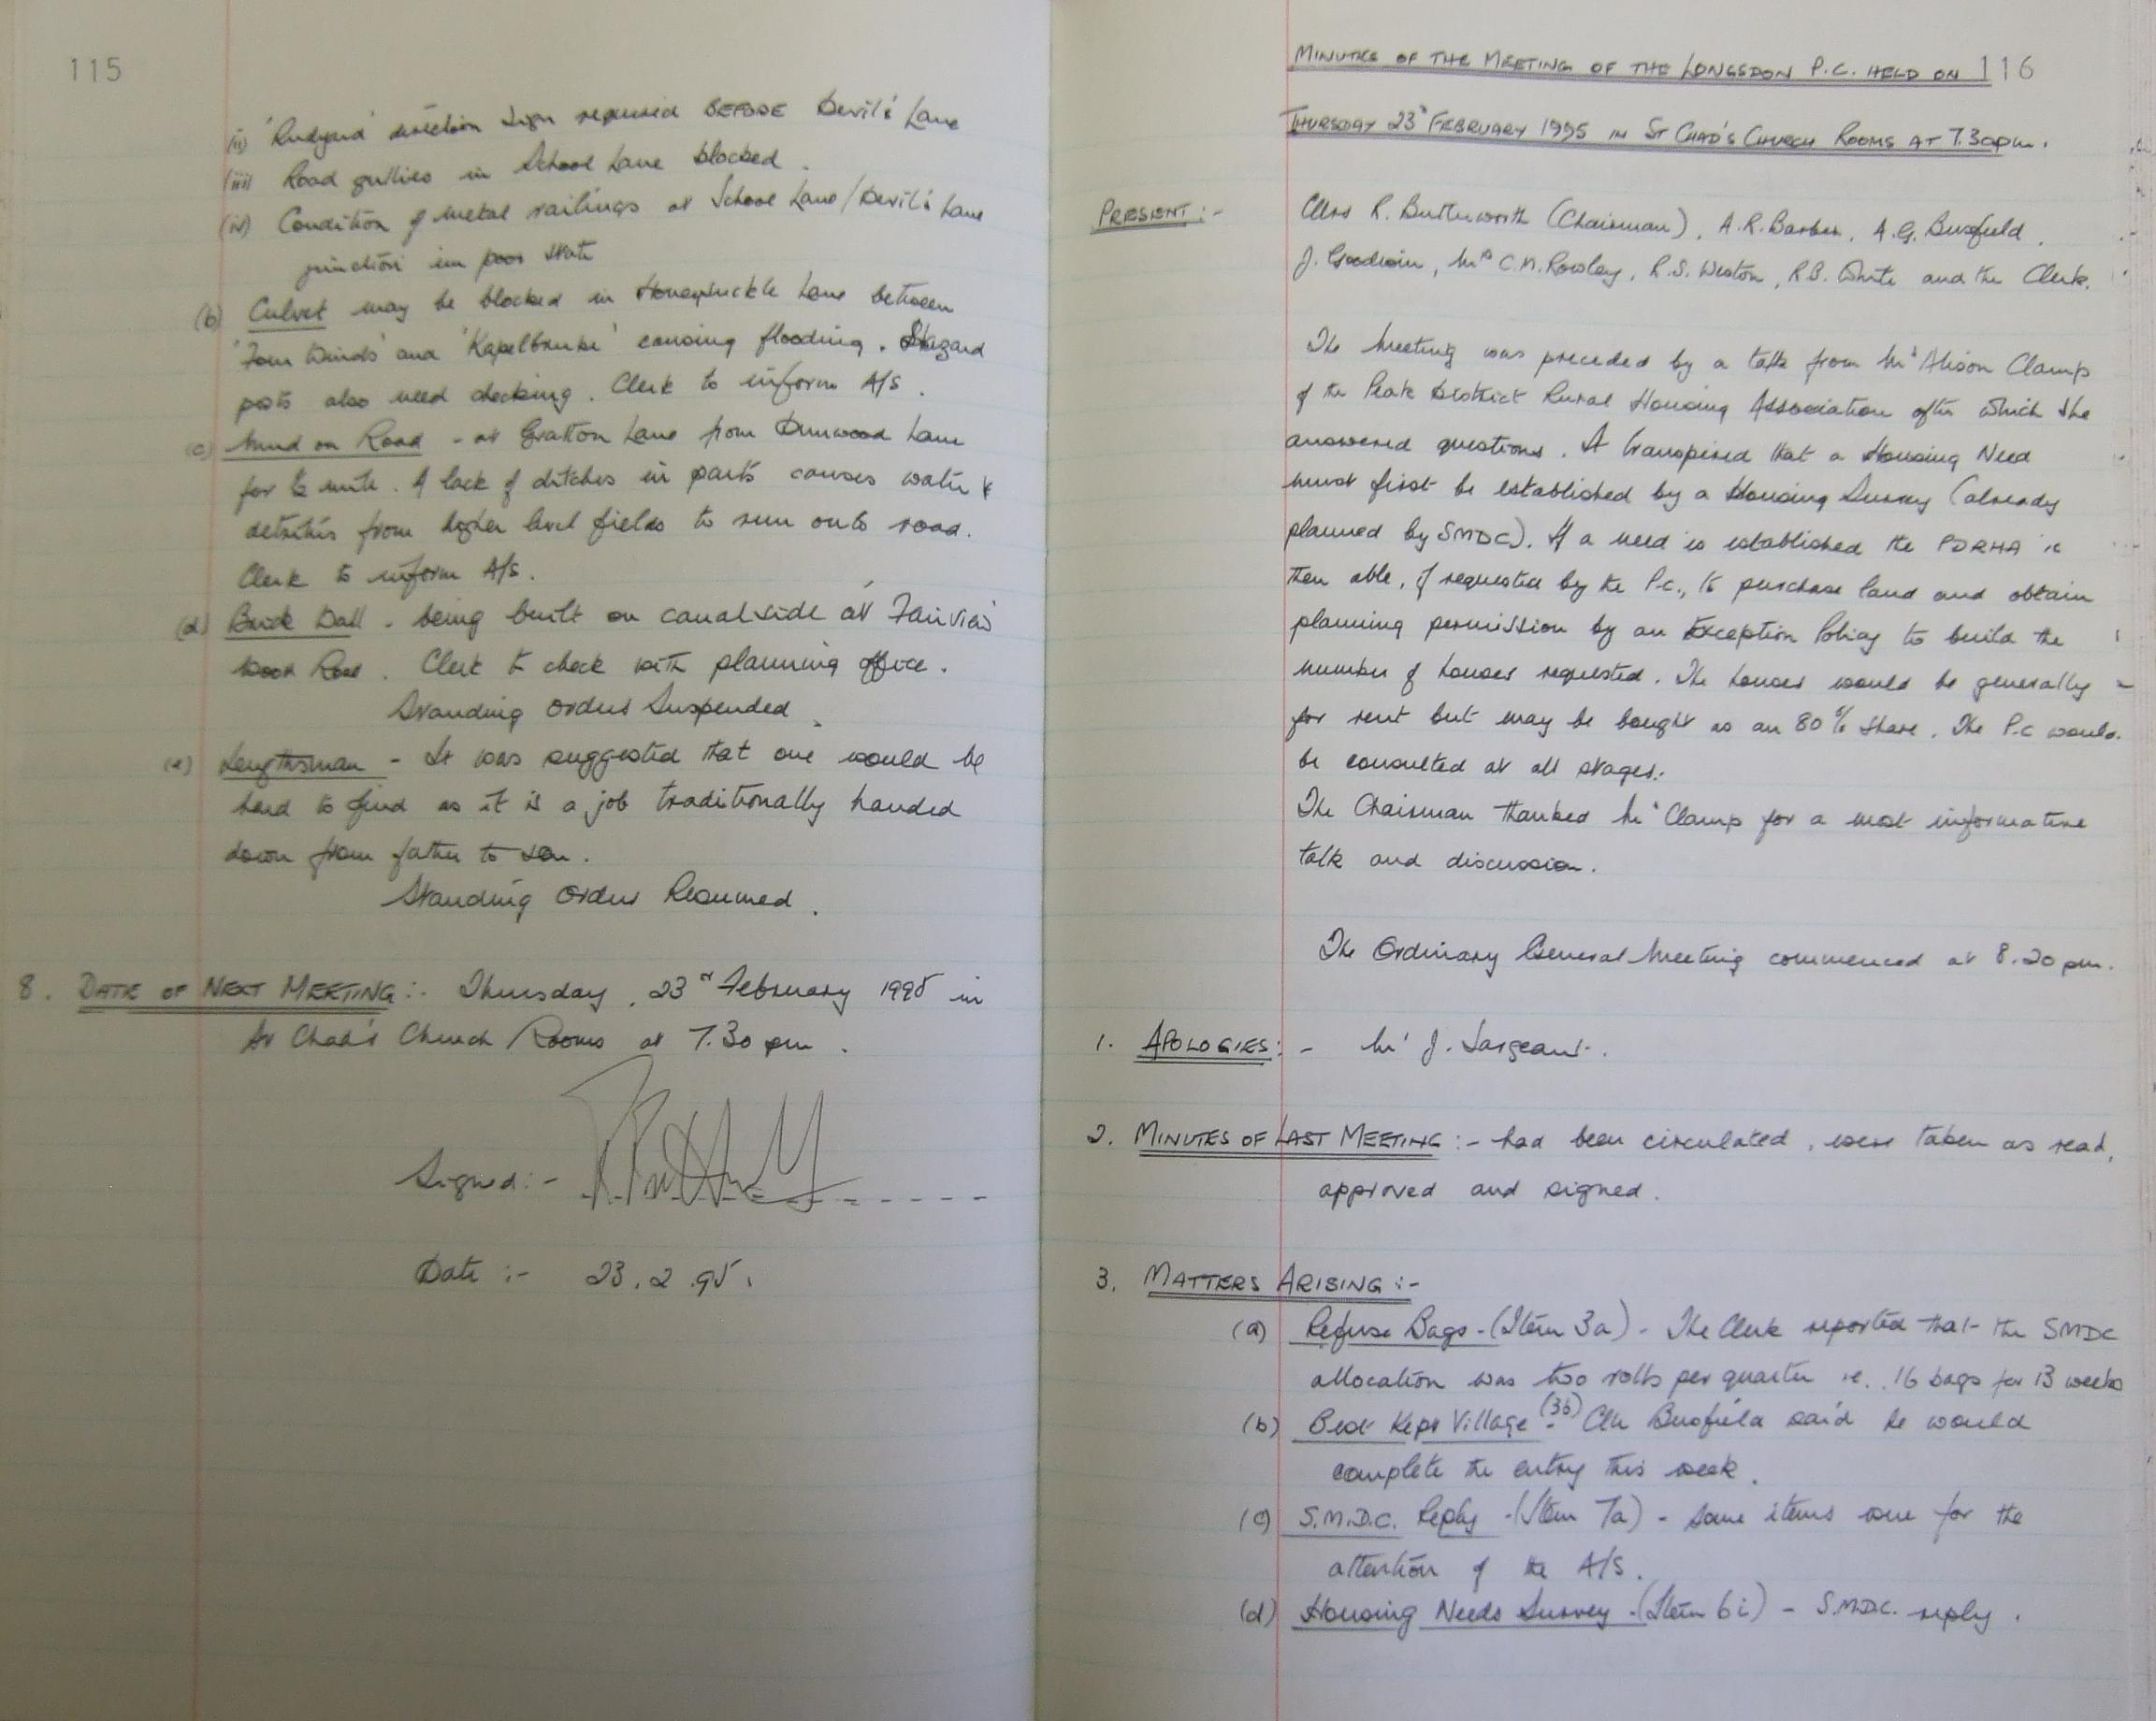 115
(ii) 'Rudyard' direction sign required BEFORE Devil's Lane
(iii) Road gullies in School Lane blocked.
(iv) Condition of metal railings at School Lane/Devil's Lane
junction in poor state
(b) Culvet may be blocked in Honeysuckle Lane between
'Four Winds' and 'Kapelbruke' causing flooding. Hazard
posts also need checking. Clerk to inform A/S.
(c) Mud on Road - at Gratton Lane from Dunwood Lane
for ½ mile. A lack of ditches in parts causes water &
detritis from higher level fields to run onto road.
Clerk to inform A/S.
(d) Brick Wall - being built on canalside at Fairview
Road. Clerk to check with planning office.
Standing Orders Suspended.
(e) Lengthsman - It was suggested that one would be
hard to find as it is a job traditionally handed
down from father to son.
Standing Orders Resumed.
8. DATE OF NEXT MEETING:- Thursday, 23rd February 1995 in
St Chad's Church Rooms at 7.30 pm.
Signed:-
Date :- 23.2.95.
MINUTES OF THE MEETING OF THE LONGSDON P.C. HELD ON 116
THURSDAY 23rd FEBRUARY 1995 IN ST CHAD'S CHURCH ROOMS AT 7.30pm.
PRESENT:- Cllrs R. Butterworth (Chairman), A.R. Barber, A.G. Busfield,
J. Goodwin, Mrs C.M. Rowley, R.S. Weston, R.B. White and the Clerk.
The Meeting was preceded by a talk from Ms Alison Clamp
of the Peak District Rural Housing Association after which she
answered questions. It transpired that a Housing Need
must first be established by a Housing Survey (already
planned by SMDC). If a need is established the PDRHA is
then able, if requested by the P.C., to purchase land and obtain
planning permission by an Exception Policy to build the
number of houses requested. The houses would be generally
for rent but may be bought as an 80% share. The P.C would
be consulted at all stages.
The Chairman thanked Ms Clamp for a most informative
talk and discussion.
The Ordinary General Meeting commenced at 8.20 pm.
1. APOLOGIES:- Mr J. Sargeant.
2. MINUTES OF LAST MEETING:- had been circulated, were taken as read,
approved and signed.
3. MATTERS ARISING:-
(a) Refuse Bags - (Item 3a) - The Clerk reported that the SMDC
allocation was two rolls per quarter ie. 16 bags for 13 weeks
(b) Best Kept Village (3b) - Cllr Busfield said he would
complete the entry this week.
(c) S.M.D.C. Reply - (Item 7a) - some items were for the
attention of the A/S.
(d) Housing Needs Survey - (Item 6i) - S.M.D.C. reply.